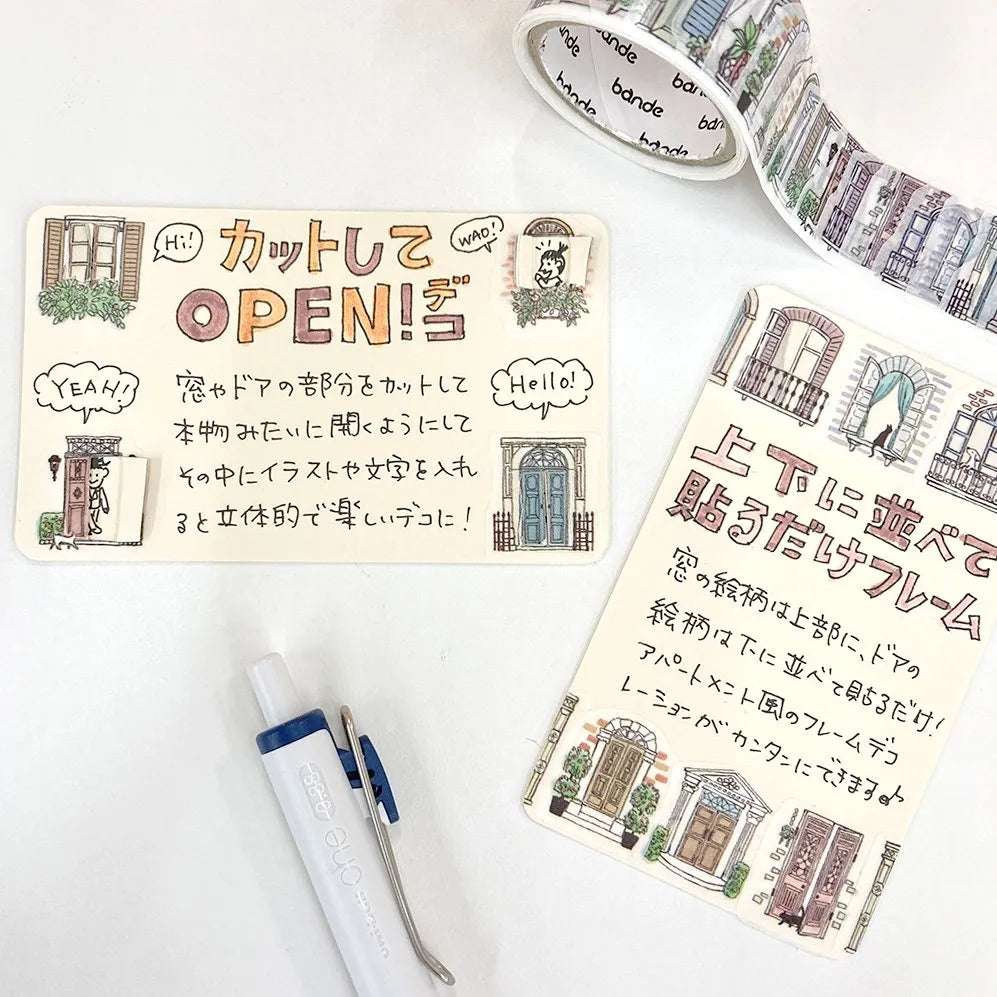 bande
bande
bande
bande
bande
Hi!
カットして
WAO!
OPEN!デコ
YEAH!
Hello!
窓やドアの部分をカットして
本物みたいに開くようにして
その中にイラストや文字を入れ
ると立体的で楽しいデコに!
上下に並べて
貼るだけフレーム
窓の絵柄は上部に、ドアの
絵柄は下に並べて貼るだけ!
アパートメント風のフレームデコ
レーションがカンタンにできます♪
one